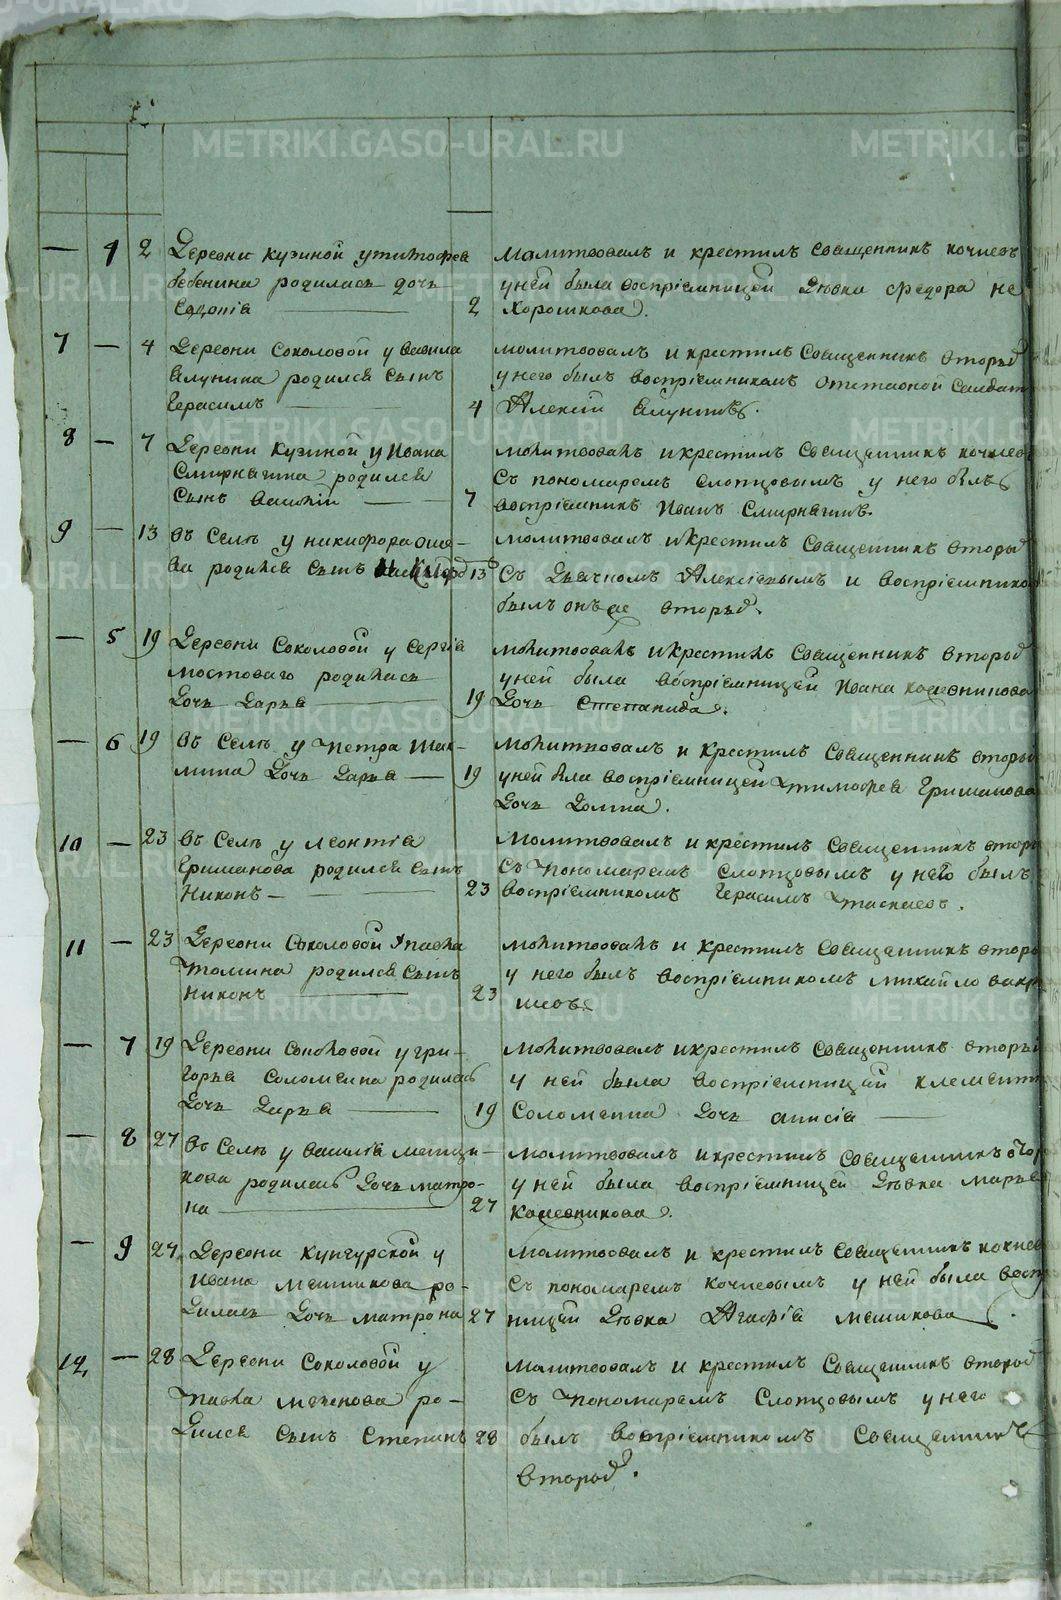 — 4 2 Деревни Кузиной у Тимофея
Бабенина родилась дочь
Евдокія
Молитвовалъ и крестилъ священникъ Кочневъ
у ней была воспріемницей девка Федора Не
2 Хорошкова.
7 — 4 Деревни Соколовой у Вавила
родился сынъ
Герасимъ
молитвовалъ и крестилъ священникъ вторый
у него былъ воспріемникомъ отставной салдатъ
4 Алексій
8 — 7 Деревни Кузиной у Ивана
Смирнягина родился
сынъ Василій
молитвовалъ и крестилъ священникъ Кочнев
съ пономаремъ Слопцовымъ у него былъ
7 воспріемникъ Иванъ Смирнягинъ.
9 — 13 въ Селѣ у Никифора
родился сынъ
молитвовалъ и крестилъ священникъ вторый
13 съ Дьячкомъ Алексіевымъ и воспріемнико
былъ онъ же вторый.
— 5 19 Деревни Соколовой у Сергія
Мостоваго родилась
дочь Дарья
молитвовалъ и крестилъ священникъ второй
у ней была воспріемницей Ивана Кожевникова
19 дочь Степанида.
— 6 19 въ Селѣ у Петра
дочь Дарья
Молитвовалъ и крестилъ священникъ вторый
19 у ней была воспріемницей Тимофея Гришанова
дочь Домна.
10 — 23 въ Селѣ у Леонтія
Гришанова родился сынъ
Никонъ
Молитвовалъ и крестилъ священникъ вторы
съ Пономаремъ Слопцовымъ у него былъ
23 воспріемникомъ Герасимъ
11 — 23 Деревни Соколовой у Павла
Томина родился сынъ
Никонъ
молитвовалъ и крестилъ священникъ вторы
у него былъ воспріемникомъ Михайло
23
— 7 19 Деревни Соколовой у Гри-
горья Соломеина родилась
дочь Дарья
молитвовалъ и крестилъ священникъ вторый
у ней была воспріемницей Клементія
19 Соломеина дочь Анисія
— 8 27 въ Селѣ у Василія
родилась дочь Матро-
на
молитвовалъ и крестилъ священникъ втор
у ней была воспріемницей девка Марья
27 Кожевникова.
— 9 27 Деревни Кунгурской у
Ивана Мешикова ро-
дилась дочь Матрона
молитвовалъ и крестилъ священникъ Кочнев
съ пономаремъ Кочневымъ у ней была восп
27 ницей девка Агафія Мешикова
12 — 28 Деревни Соколовой у
Павла ро-
дился сынъ Степанъ
молитвовалъ и крестилъ священникъ второй
съ Пономаремъ Слопцовымъ у него
28 былъ воспріемникомъ священникъ
второй.
METRIKI.GASO-URAL.RU